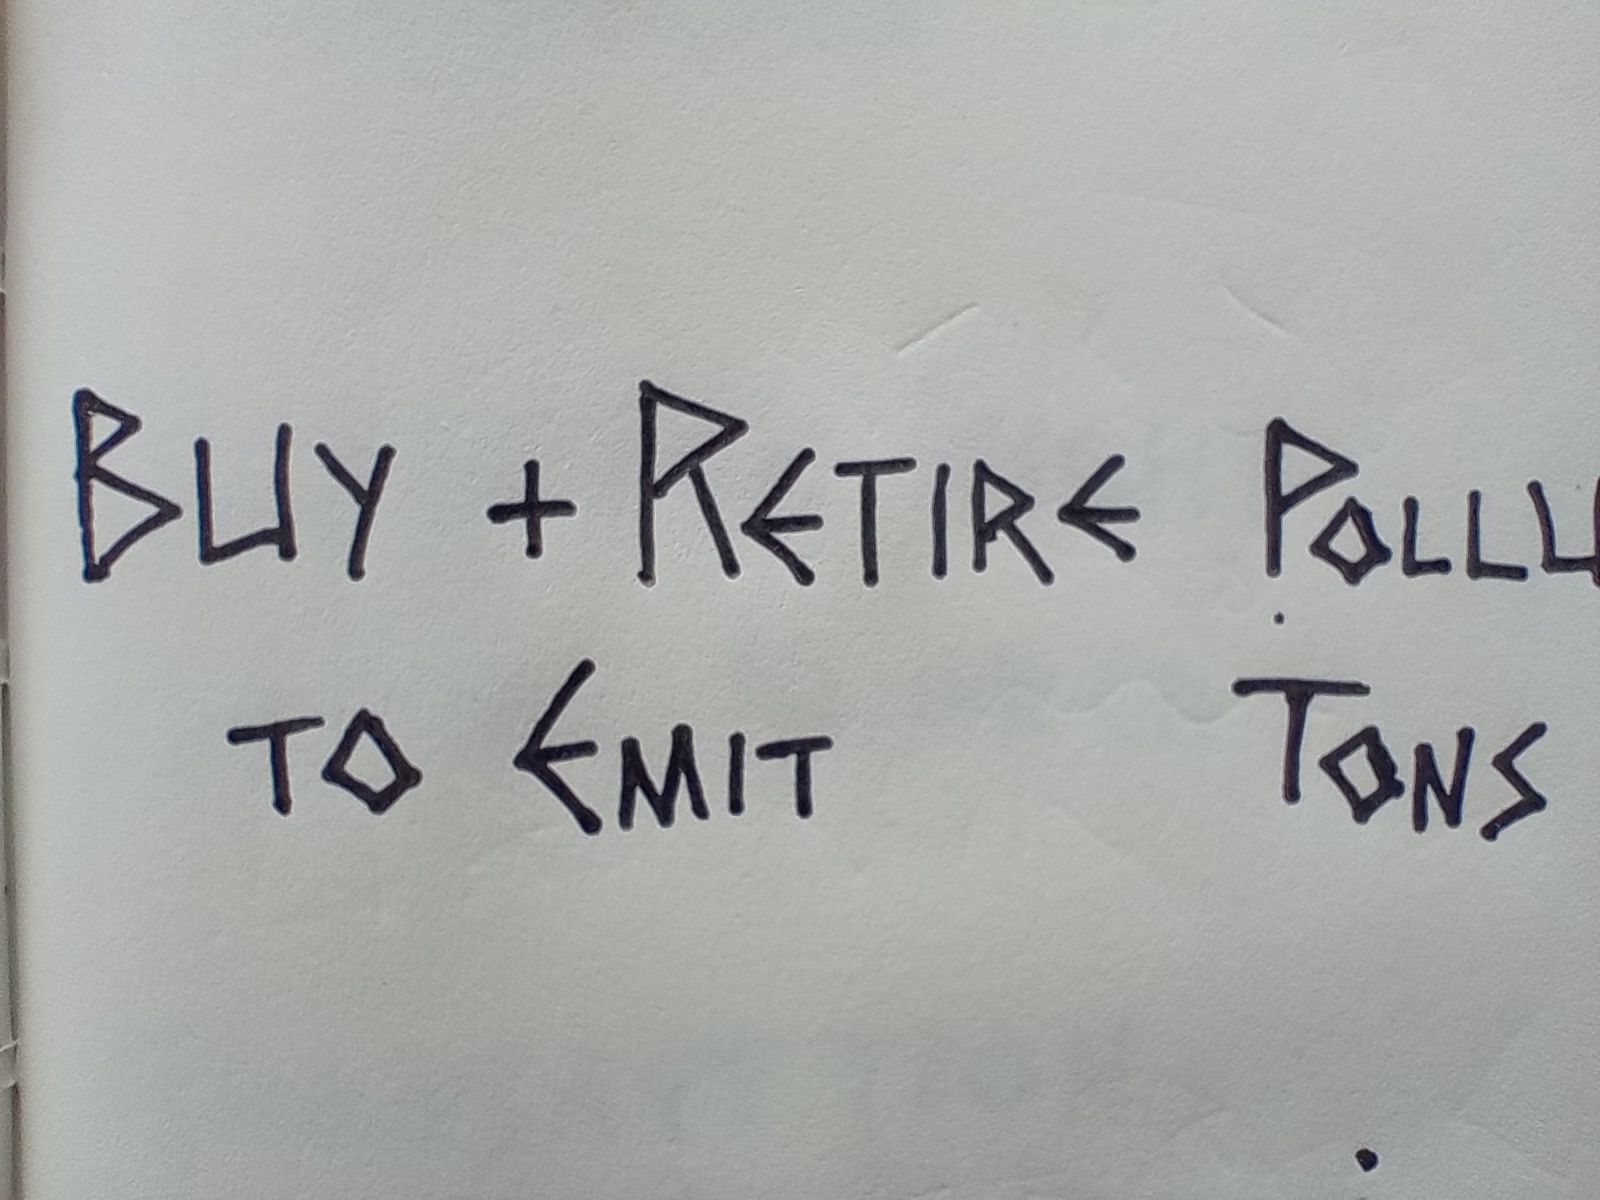 BUY + RETIRE POLLU
TO EMIT TONS